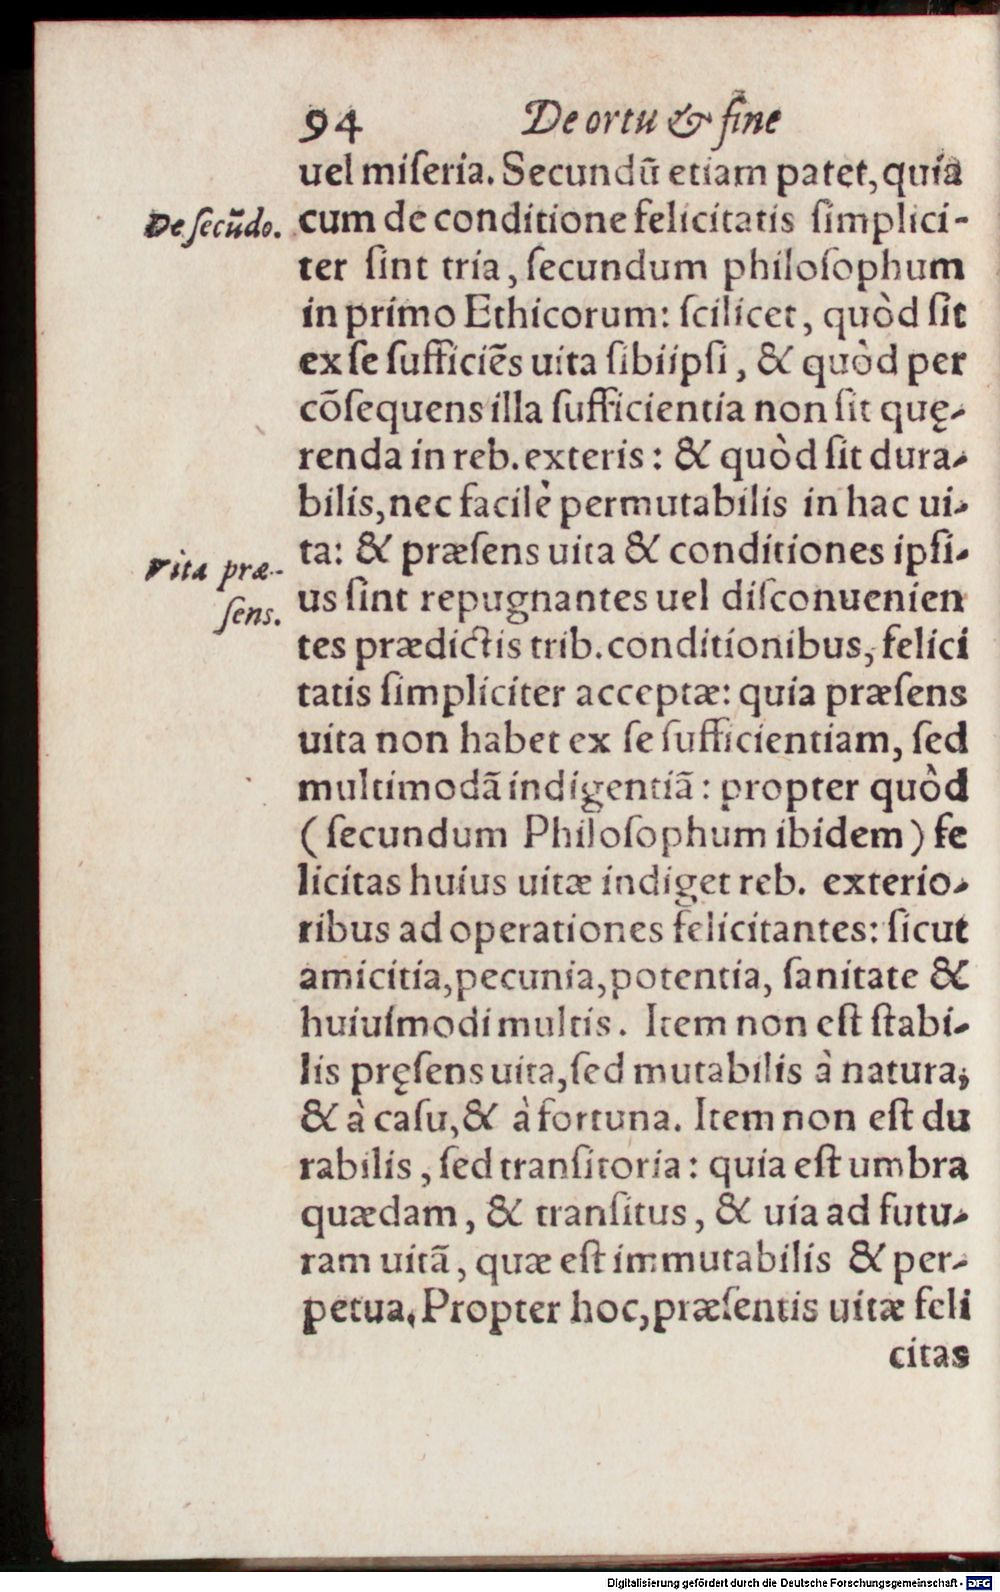 94 De ortu & fine
uel miſeria. Secundũ etiam patet, quia
De ſecũdo. cum de conditione felicitatis ſimplici-
ter ſint tria, ſecundum philoſophum
in primo Ethicorum: ſcilicet, quòd ſit
ex ſe ſufficiẽs uita ſibiipſi, & quòd per
cõſequens illa ſufficientia non ſit quę-
renda in reb. exteris: & quòd ſit dura-
bilis, nec facilè permutabilis in hac ui-
Vita præ- ta: & præſens uita & conditiones ipſi-
ſens. us ſint repugnantes uel diſconuenien
tes prædictis trib. conditionibus, felici
tatis ſimpliciter acceptæ: quia præſens
uita non habet ex ſe ſufficientiam, ſed
multimodã indigentiã: propter quòd
(ſecundum Philoſophum ibidem) fe
licitas huius uitæ indiget reb. exterio-
ribus ad operationes felicitantes: ſicut
amicitia, pecunia, potentia, ſanitate &
huiuſmodi multis. Item non eſt ſtabi-
lis pręſens uita, ſed mutabilis à natura,
& à caſu, & à fortuna. Item non eſt du
rabilis, ſed tranſitoria: quia eſt umbra
quædam, & tranſitus, & uia ad futu-
ram uitã, quæ eſt immutabilis & per-
petua. Propter hoc, præſentis uitæ feli
citas
Digitalisierung gefördert durch die Deutsche Forschungsgemeinschaft - DFG